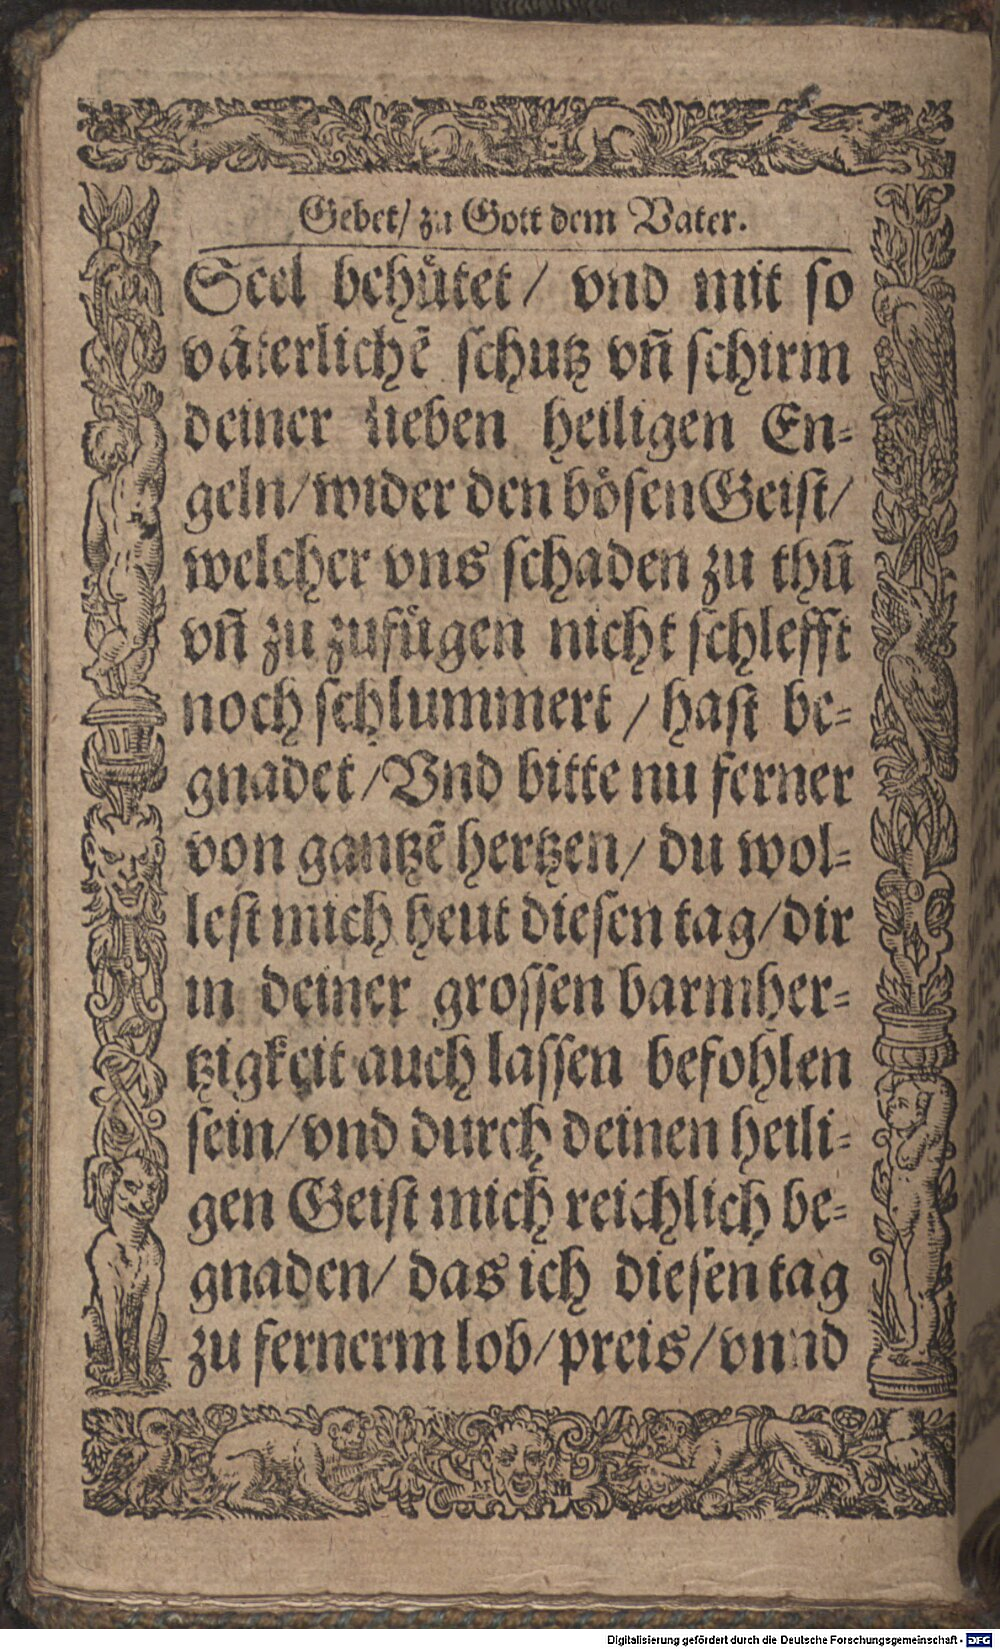 Gebet/ zu Gott dem Vater.
Seel behuͤtet / vnd mit so
vaͤterlichẽ schutz vñ schirm
deiner lieben heiligen En⸗
geln/ wider den boͤsen Geist/
welcher vns schaden zu thũ
vñ zu zufuͤgen nicht schlefft
noch schlummert / hast be⸗
gnadet / Vnd bitte nu ferner
von gantzẽ hertzen / du wol⸗
lest mich heut diesen tag / dir
in deiner grossen barmher⸗
tzigkeit auch lassen befohlen
sein / vnd durch deinen heili⸗
gen Geist mich reichlich be⸗
gnaden / das ich diesen tag
zu fernerm lob / preis / vnnd
M
Digitalisierung gefördert durch die Deutsche Forschungsgemeinschaft - DFG